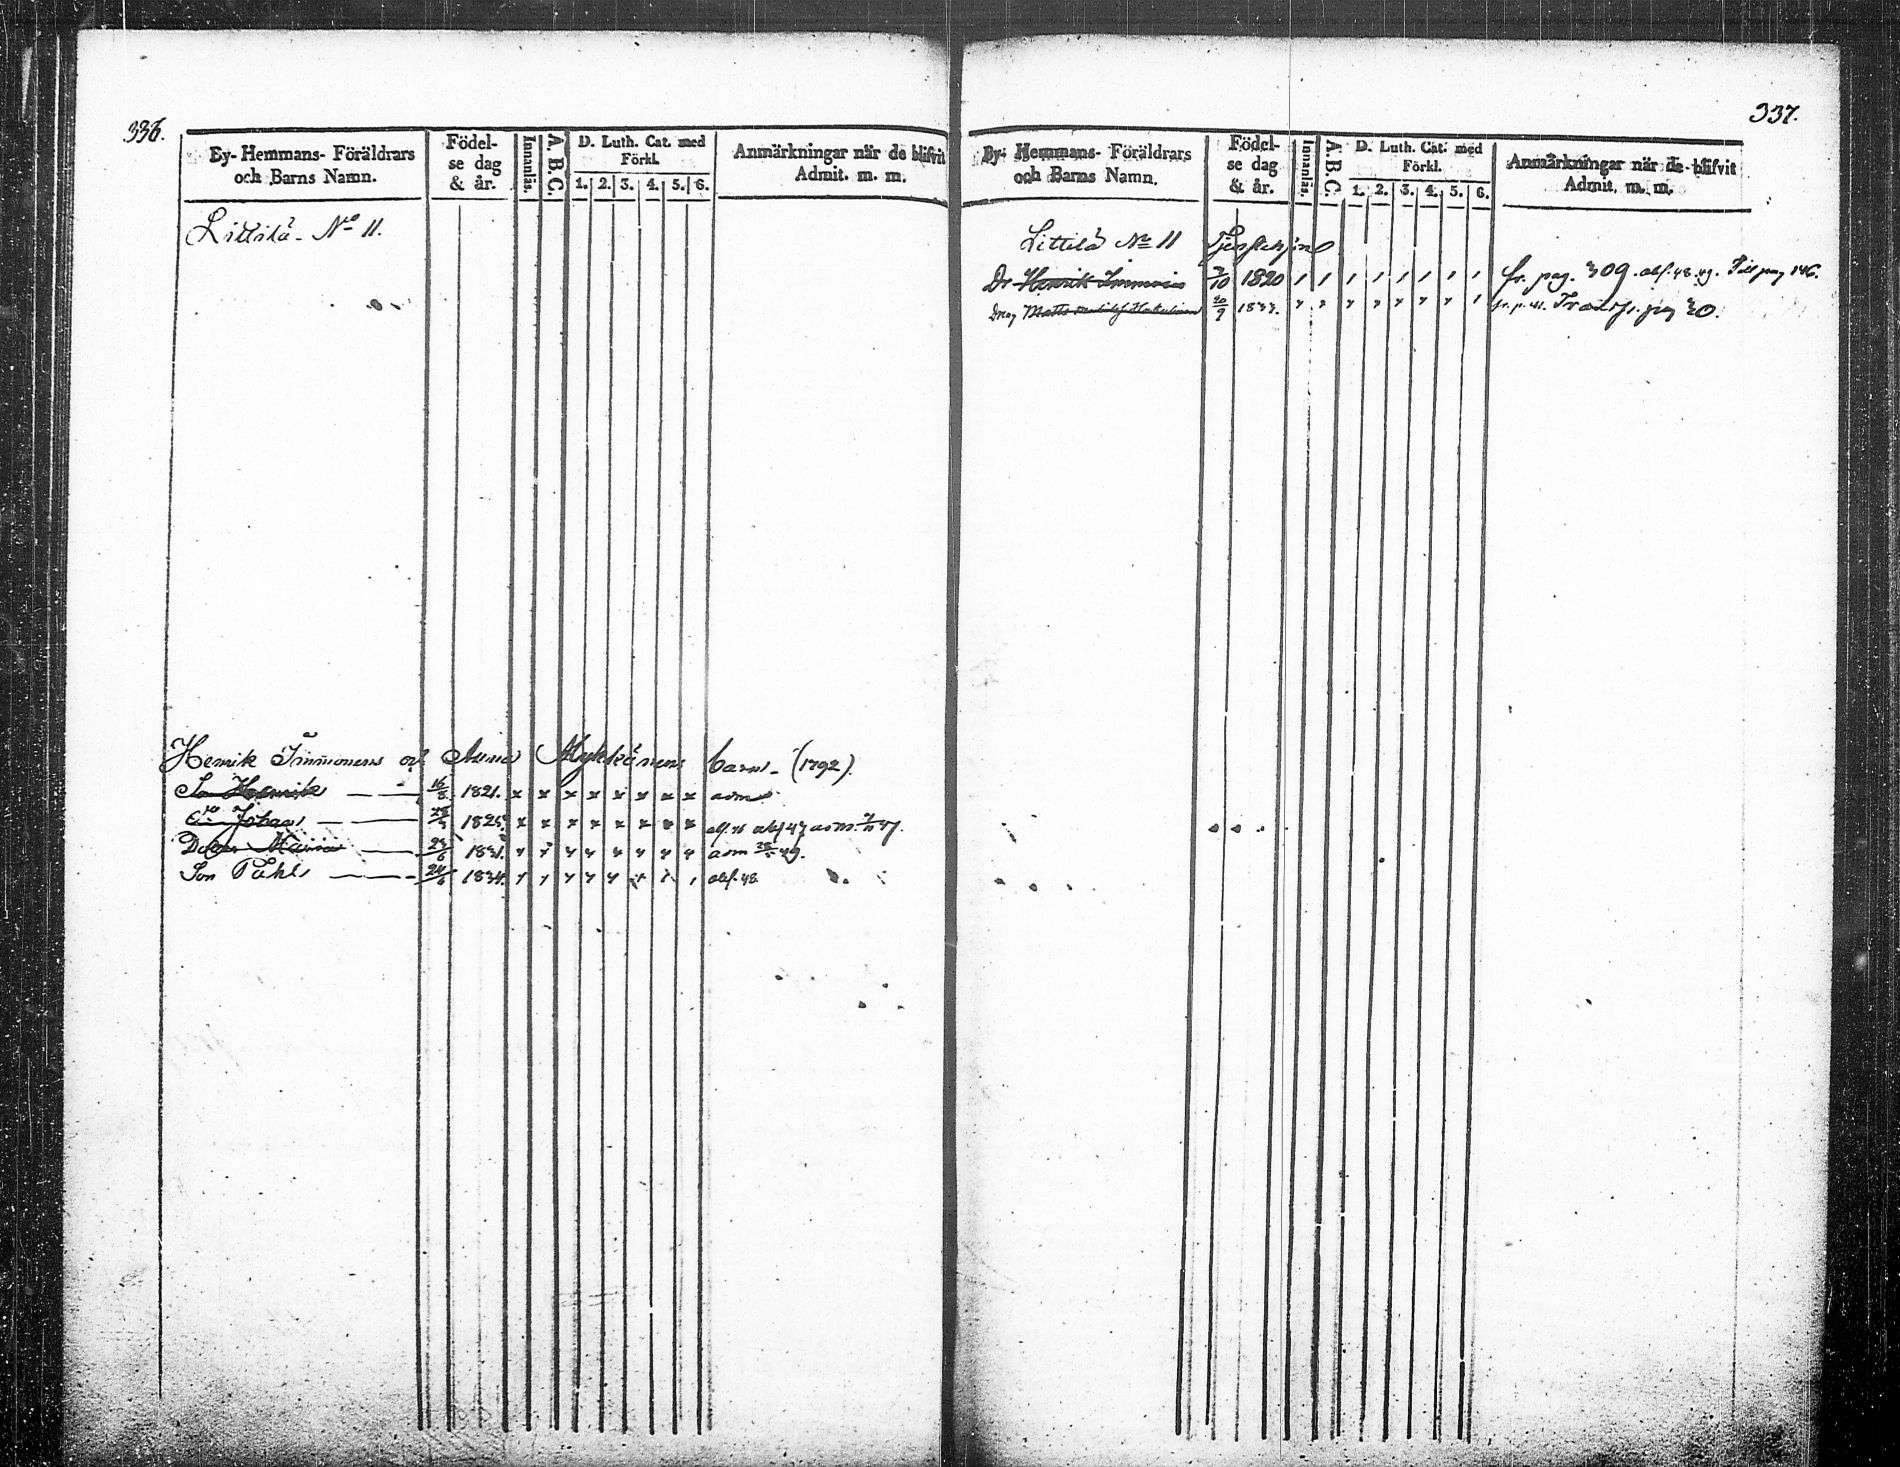 336.
By- Hemmans- Föräldrars och Barns Namn.
Födelse dag & år.
Innanläs.
A. B. C.
D. Luth. Cat. med Förkl.
1. 2. 3. 4. 5. 6.
Anmärkningar när de blifvit Admit. m. m.
Littilä No 11.
Henrik Immonens och Anna Mykkänens barn (1792).
Son Henrik 16/8 1821. x x x x x x x x adm
do Johan 1825. x x x x x x x x abs. 47
Dotter Maria 23/6 1831. adm 49.
Son Påhl 24/6 1834. abs. 48
337.
By- Hemmans- Föräldrars och Barns Namn.
Födelse dag & år.
Innanläs.
A. B. C.
D. Luth. Cat. med Förkl.
1. 2. 3. 4. 5. 6.
Anmärkningar när de blifvit Admit. m. m.
Littilä No 11
Dr Henrik Immonen 1820 1 1 1 1 1 1 1 1 fr. pag. 309. abs. 48. 49. Till pag 146.
Dräng Matts 20/9 1833. Transp. pag 20.